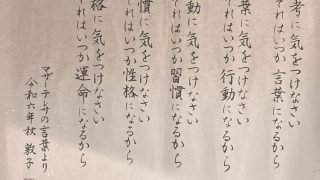 考に気をつけなさい
それはいつか言葉になるから
葉に気をつけなさい
それはいつか行動になるから
動に気をつけなさい
それはいつか習慣になるから
慣に気をつけなさい
それはいつか性格になるから
格に気をつけなさい
それはいつか運命になるから
マザーテレサの言葉より
令和六年秋 敦子